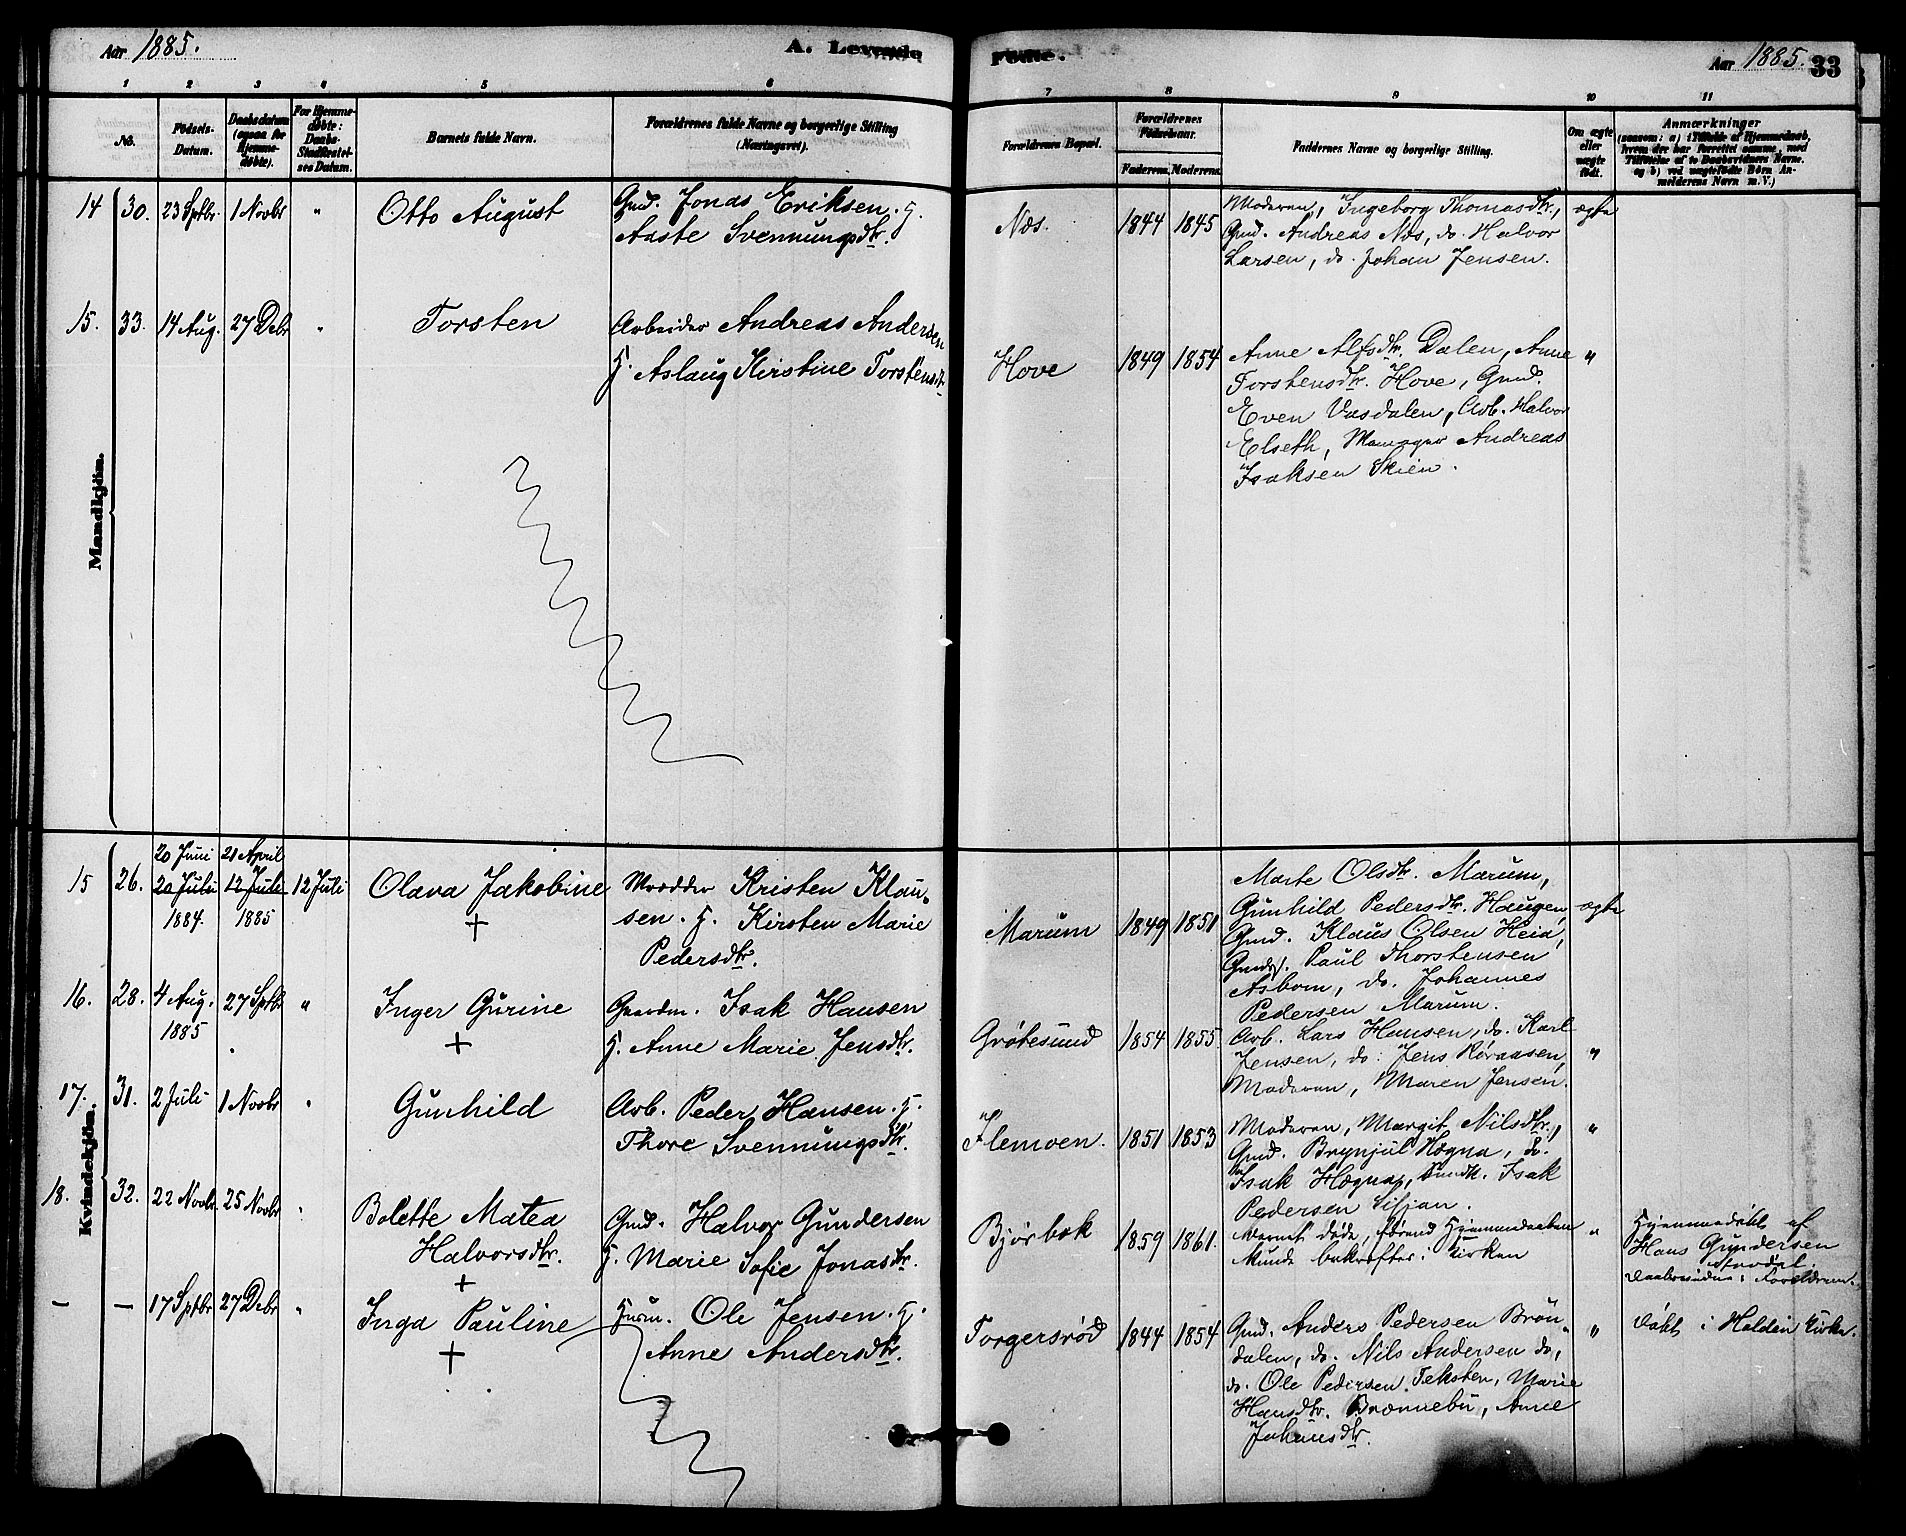 Aar 1885.
A. Levende
Fødte.
Aar 1885.
33
1 2 3 4 5 6 7 8 9 10 11
No.
Fødsels-
Datum.
Daabsdatum
(ogsaa for
Hjemme-
døbte).
For Hjemme-
døbte:
Daabs-
Stadfæstel-
ses Datum.
Barnets fulde Navn.
Forældrenes fulde Navne og borgerlige Stilling
(Næringsvei).
Forældrenes Bopæl.
Forældrenes
Fødselsaar.
Faderens. Moderens.
Faddernes Navne og borgerlige Stilling.
Om ægte
eller
uægte
født.
Anmærkninger
(saasom: a) i Tilfælde af Hjemmedaab,
hvem der har forrettet samme, med
Tilføielse af to Daabsvidners Navne,
og b) ved uægtefødte Børn An-
melderens Navn m. V.)
Mandkjøn.
14 30. 23 Sptbr. 1 Novbr "
Otto August
Gmd. Jonas Eriksen. H.
Aaste Svennungsdtr.
Næs. 1844 1845
Moderen, Ingeborg Thomasdtr.,
Gmd. Andreas Næs, do. Halvor
Larsen, do. Johan Jensen.
ægte
15. 33. 14 Aug. 27 Debr "
Torsten
Arbeider Andreas Andersen
H. Aslaug Kirstine Torstensdt.
Hove 1849 1854
Anne Alfsdtr. Dalen, Anne
Torstensdtr. Hove, Gmd.
Even Vasdalen, Arb. Halvor
Elseth, Andreas
Isaksen Skien.
"
Kvindekjøn.
15 26. 20 Juni 21 April
20 Juli 12 Juli 12 Juli
1884. 1885
Olava Jakobine
+
Kristen Klau-
sen. H. Kirsten Marie
Pedersdtr.
Marum 1849 1851
Marte Olsdtr. Marum,
Gunhild Pedersdtr. Haugen,
Gmd. Klaus Olsen Heia,
Paul Thorstensen
Asbom, do. Johannes
Pedersen Marum.
ægte
16. 28. 4 Aug. 27 Sptbr "
1885
Inger Gurine
+
Gaardm. Isak Hansen
H. Anne Marie Jensdtr.
Grøtesund 1854 1855
Arb. Lars Hansen, do. Karl
Jensen, do: Jens Røraasen,
Moderen, Maren Jensen.
"
17. 31. 2 Juli 1 Novbr "
Gunhild
Arb. Peder Hansen. H.
Thore Svennungsdtr.
Flemoen. 1851 1853
Moderen, Margit Nilsdtr.,
Gmd. Brynjul Høgna, do.
Isak Høgna, Isak
Pedersen
"
18. 32. 22 Novbr. 25 Novbr "
Bolette Matea
Halvorsdtr.
+
Gmd. Halvor Gundersen
H. Marie Sofie Jonasdtr.
Bjørbæk 1859 1861.
Barnet døde, førend Hjemmedaaben
kunde bekræftes i Kirken
"
Hjemmedøbt af
Hans Gundersen
Daabsvidner: Forældrene.
— — 17 Sptbr. 27 Debr "
Inga Pauline
+
Husm. Ole Jensen. H.
Anne Andersdtr.
Torgersrød 1844 1854
Gmd. Anders Pedersen Brøn-
dalen, do. Nils Andersen do,
do. Ole Pedersen Teksten, Marie
Hansdtr. Brønnebu, Anne
Johansdtr.
"
Døbt i Holden Kirke.